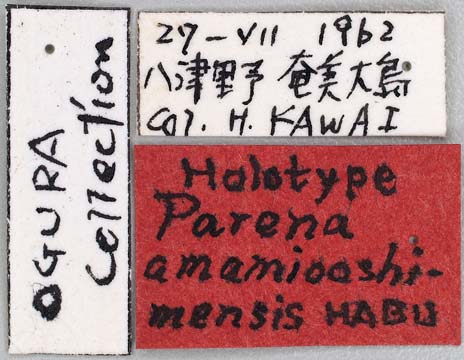 OGURA
collection
27-VII 1962
八津野 奄美大島
Col. H. KAWAI
Holotype
Parena
amamiooshi-
mensis HABU